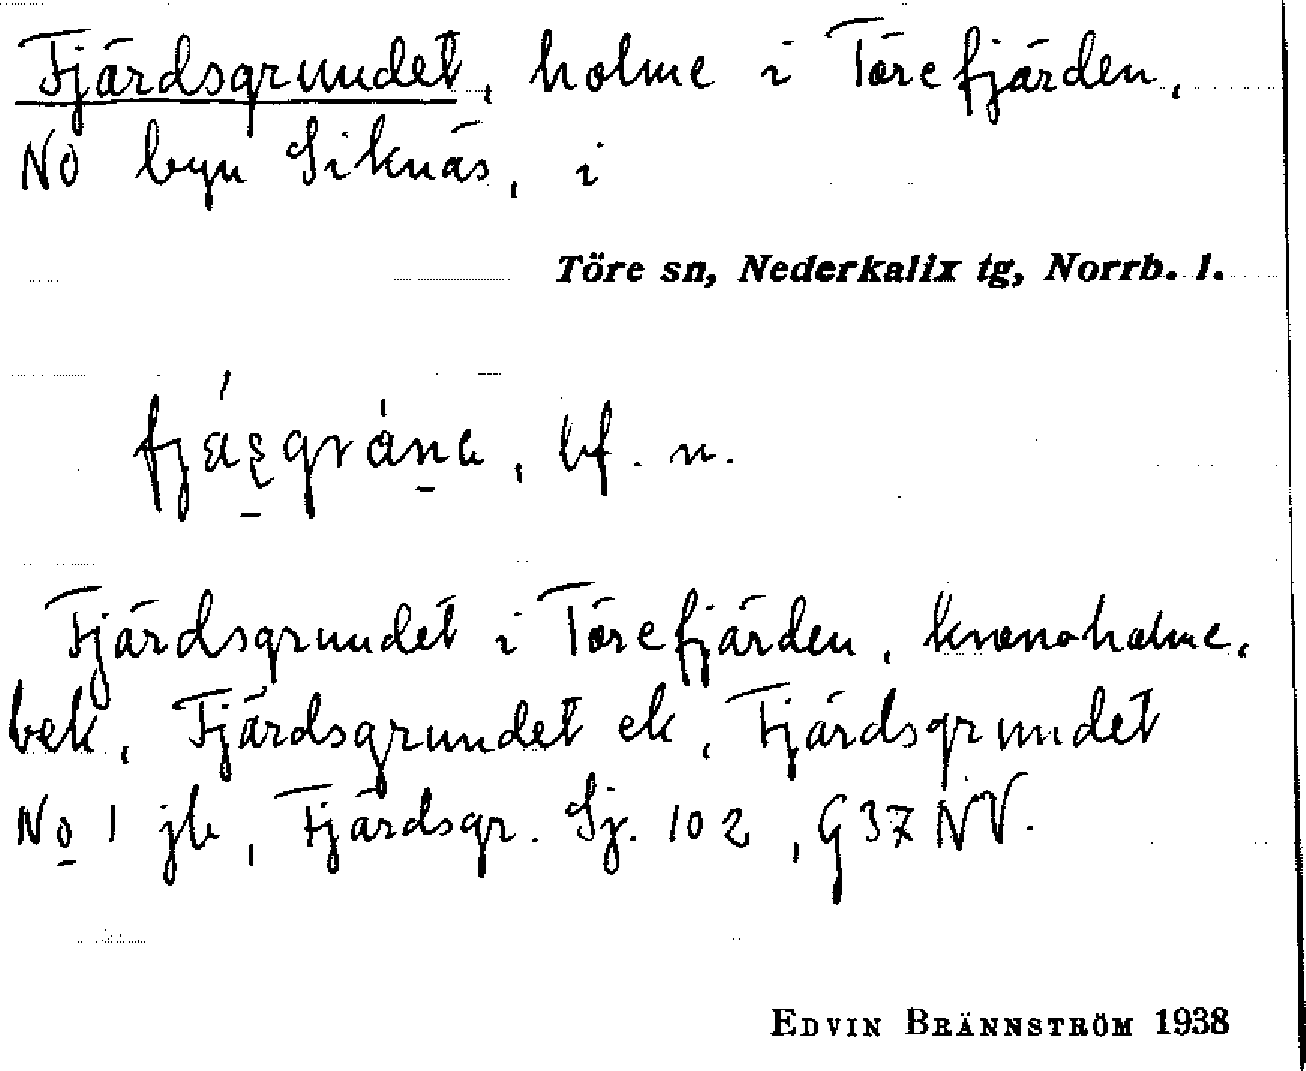 Fjärdsgrundet, holme i Törefjärden,
NO byn Siknäs, i
Töre sn, Nederkalix tg, Norrb. l.
bf. n.
Fjärdsgrundet i Törefjärden, kronoholme,
bek, Fjärdsgrundet ek, Fjärdsgrundet
No 1 jb, Fjärdsgr. Sj. 102, G37NV.
EDVIN BRÄNNSTRÖM 1938